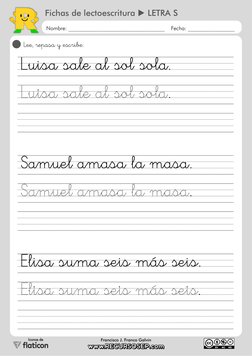 Fichas de lectoescritura ▶ LETRA S
Nombre: Fecha:
Lee, repasa y escribe:
Luisa sale al sol sola.
Luisa sale al sol sola.
Samuel amasa la masa.
Samuel amasa la masa.
Elisa suma seis más seis.
Elisa suma seis más seis.
Iconos de
flaticon
Francisco J. Franco Galvín
www.RECURSOSEP.com